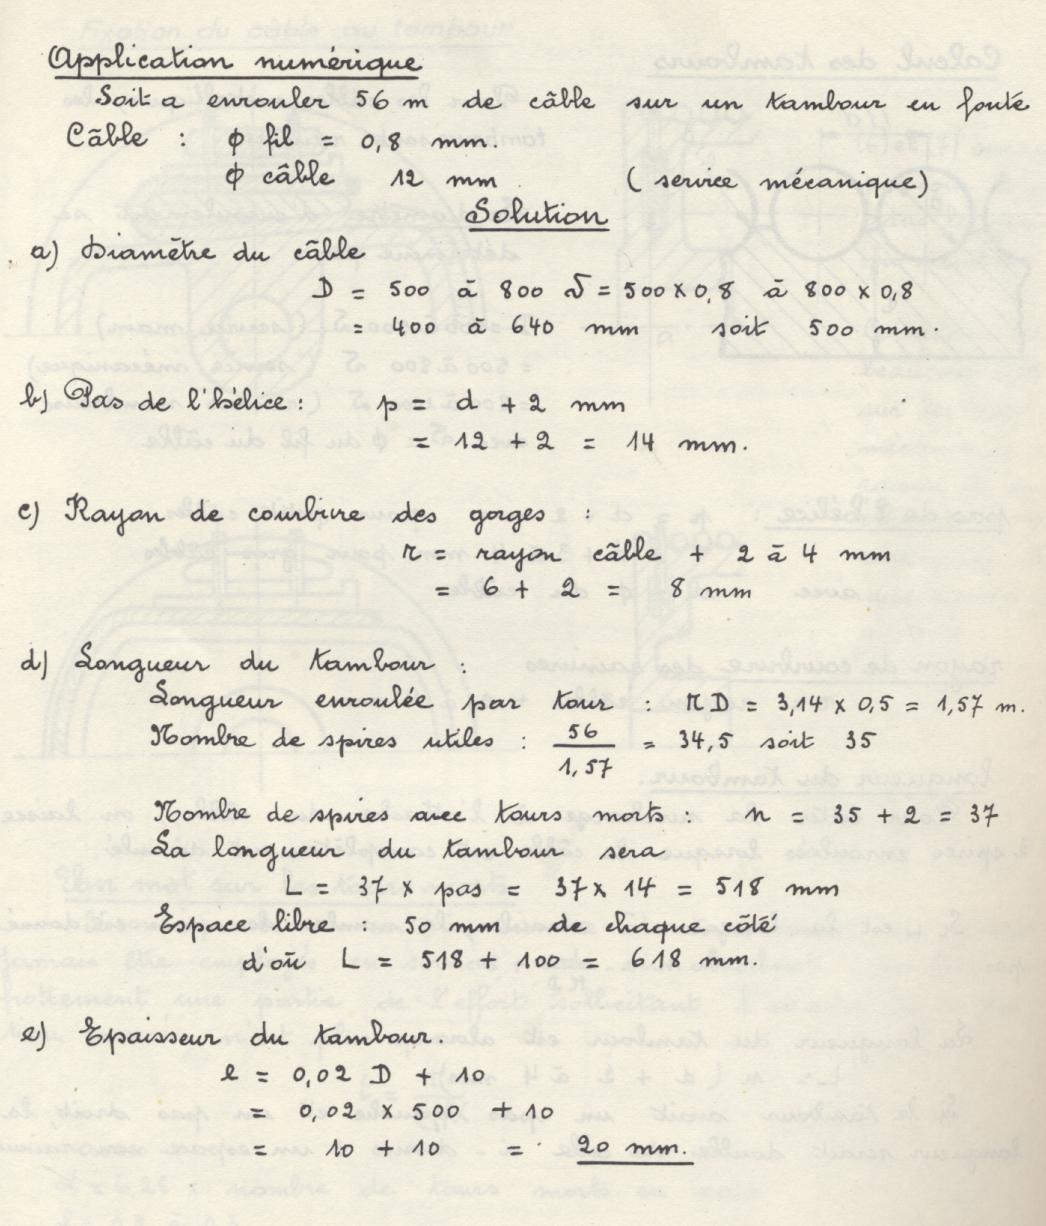 Application numérique
Soit a enrouler 56 m de câble sur un tambour en fonte
Câble : φ fil = 0,8 mm.
φ câble 12 mm (service mécanique)
Solution
a) Diamètre du câble
D = 500 à 800 δ = 500 x 0,8 à 800 x 0,8
= 400 à 640 mm soit 500 mm.
b) Pas de l'hélice : p = d + 2 mm
= 12 + 2 = 14 mm.
c) Rayon de courbure des gorges :
r = rayon câble + 2 à 4 mm
= 6 + 2 = 8 mm
d) Longueur du tambour :
Longueur enroulée par tour : π D = 3,14 x 0,5 = 1,57 m.
Nombre de spires utiles : 56/1,57 = 34,5 soit 35
Nombre de spires avec tours morts : n = 35 + 2 = 37
La longueur du tambour sera
L = 37 x pas = 37 x 14 = 518 mm
Espace libre : 50 mm de chaque côté
d'où L = 518 + 100 = 618 mm.
e) Epaisseur du tambour.
e = 0,02 D + 10
= 0,02 x 500 + 10
= 10 + 10 = 20 mm.